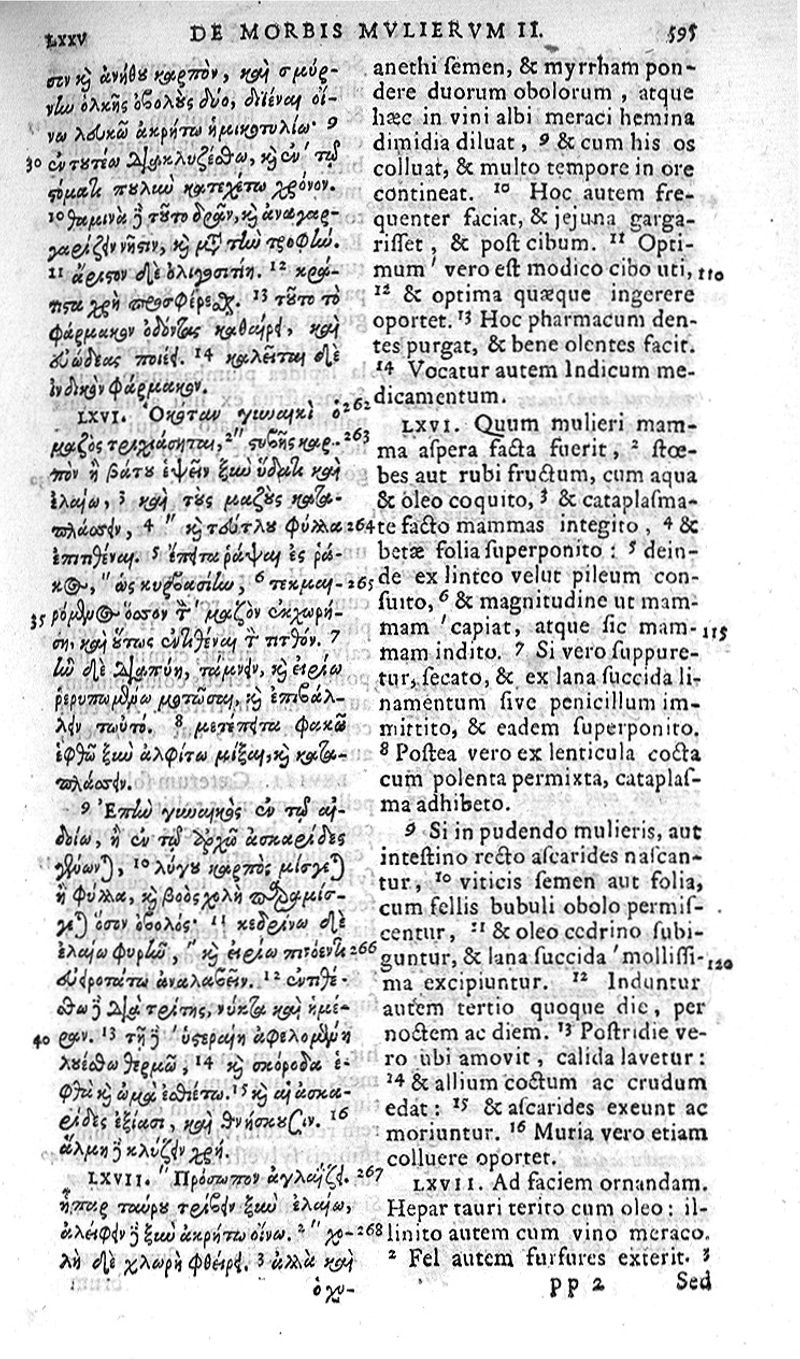 LXXV DE MORBIS MVLIERVM II. 595
σιν καὶ ἀνήθου καρπὸν, καὶ σμύρ-
νην ὁλκῆς ὀβολοὺς δύο, διεῖναι οἴ-
νῳ λευκῷ ἀκρήτῳ ἡμικοτυλίῳ· 9
30 ἐν τουτέῳ διακλυζέσθω, καὶ ἐν τῷ
στόματι πουλιὺν κατεχέτω χρόνον.
10 θαμινὰ δὲ τοῦτο δρᾷν, καὶ ἀναγαρ-
γαρίζειν νῆστιν, καὶ μετὰ τὴν τροφήν.
11 ἄριστον δὲ ὀλιγοσιτίη. 12 κρά-
τιστα χρὴ προσφέρεσθαι. 13 τοῦτο τὸ
φάρμακον ὀδόντας καθαίρει, καὶ
εὐώδεας ποιέει. 14 καλεῖται δὲ
ἰνδικὸν φάρμακον.
LXVI. Ὁκόταν γυναικὶ ὁ 262
μαζὸς τριχιάσηται, 2 " στυβῆς καρ- 263
πὸν ἢ βάτου ἑψεῖν ξὺν ὕδατι καὶ
ἐλαίῳ, 3 καὶ τοὺς μαζοὺς κατα-
πλάσσειν, 4 " καὶ τούτλου φύλλα 264
ἐπιτιθέναι. 5 ἔπειτα ῥάψαι ἐς ῥά-
κος, " ὡς κυρβασίην, 6 τεκμαι- 265
35 ρόμενος ὅσον τὸν ' μαζὸν ἐκχωρή-
σῃ, καὶ οὕτως ἐντιθέναι τὸν τιτθόν. 7
ἢν δὲ διαπύῃ, τάμνειν, καὶ εἰρίῳ
ῥερυπωμένῳ μοτῶσαι, καὶ ἐπιβάλ-
λειν τωὐτό. 8 μετέπειτα φακῷ
ἑφθῷ ξὺν ἀλφίτῳ μίξαι, καὶ κατα-
πλάσσειν.
9 Ἐπὴν γυναικὸς ἐν τῷ αἰ-
δοίῳ, ἢ ἐν τῷ ἀρχῷ ἀσκαρίδες
ἐγγένωνται, 10 λύγου καρπὸς μίσγεται
ἢ φύλλα, καὶ βοὸς χολὴ παραμίσ-
γεται ὅσον ὀβολός· 11 κεδρίνῳ δὲ
ἐλαίῳ φυρῇν, " καὶ εἰρίῳ πισόεντι 266
εὐειροτάτῳ ἀναλαβεῖν. 12 ἐντιθέ-
σθω δὲ διὰ τρίτης, νύκτα καὶ ἡμέ-
40 ραν. 13 τῇ δὲ ' ὑστεραίῃ ἀφελομένη
λουέσθω θερμῷ, 14 καὶ σκόροδα ἑ-
φθὰ καὶ ὠμὰ ἐσθιέτω. 15 καὶ αἱ ἀσκα-
ρίδες ἐξίασι, καὶ θνήσκουσιν. 16
ἅλμῃ δὲ κλύζειν χρή.
LXVII. " Πρόσωπον ἀγλαΐζει. 267
ἧπαρ ταύρου τρίβειν ξὺν ἐλαίῳ,
ἀλείφειν δὲ ξὺν ἀκρήτῳ οἴνῳ. 2 " χο- 268
λὴ δὲ χλωρὴ φθείρει. 3 ἀλλὰ καὶ
ὀχυ-
anethi ſemen, & myrrham pon-
dere duorum obolorum, atque
hæc in vini albi meraci hemina
dimidia diluat, 9 & cum his os
colluat, & multo tempore in ore
contineat. 10 Hoc autem fre-
quenter faciat, & jejuna garga-
riſſet, & poſt cibum. 11 Opti-
mum ' vero eſt modico cibo uti, 110
12 & optima quæque ingerere
oportet. 13 Hoc pharmacum den-
tes purgat, & bene olentes facit.
14 Vocatur autem Indicum me-
dicamentum.
LXVI. Quum mulieri mam-
ma aſpera facta fuerit, 2 ſtœ-
bes aut rubi fructum, cum aqua
& oleo coquito, 3 & cataplaſma-
te facto mammas integito, 4 &
betæ folia ſuperponito: 5 dein-
de ex linteo velut pileum con-
ſuito, 6 & magnitudine ut mam-
mam ' capiat, atque ſic mam- 115
mam indito. 7 Si vero ſuppure-
tur, ſecato, & ex lana ſuccida li-
namentum ſive penicillum im-
mittito, & eadem ſuperponito.
8 Poſtea vero ex lenticula cocta
cum polenta permixta, cataplaſ-
ma adhibeto.
9 Si in pudendo mulieris, aut
inteſtino recto aſcarides naſcan-
tur, 10 viticis ſemen aut folia,
cum fellis bubuli obolo permiſ-
centur, 11 & oleo cedrino ſubi-
guntur, & lana ſuccida ' molliſſi- 120
ma excipiuntur. 12 Induntur
autem tertio quoque die, per
noctem ac diem. 13 Poſtridie ve-
ro ubi amovit, calida lavetur:
14 & allium coctum ac crudum
edat: 15 & aſcarides exeunt ac
moriuntur. 16 Muria vero etiam
colluere oportet.
LXVII. Ad faciem ornandam.
Hepar tauri terito cum oleo: il-
linito autem cum vino meraco.
2 Fel autem furfures exterit. 3
pp 2 Sed